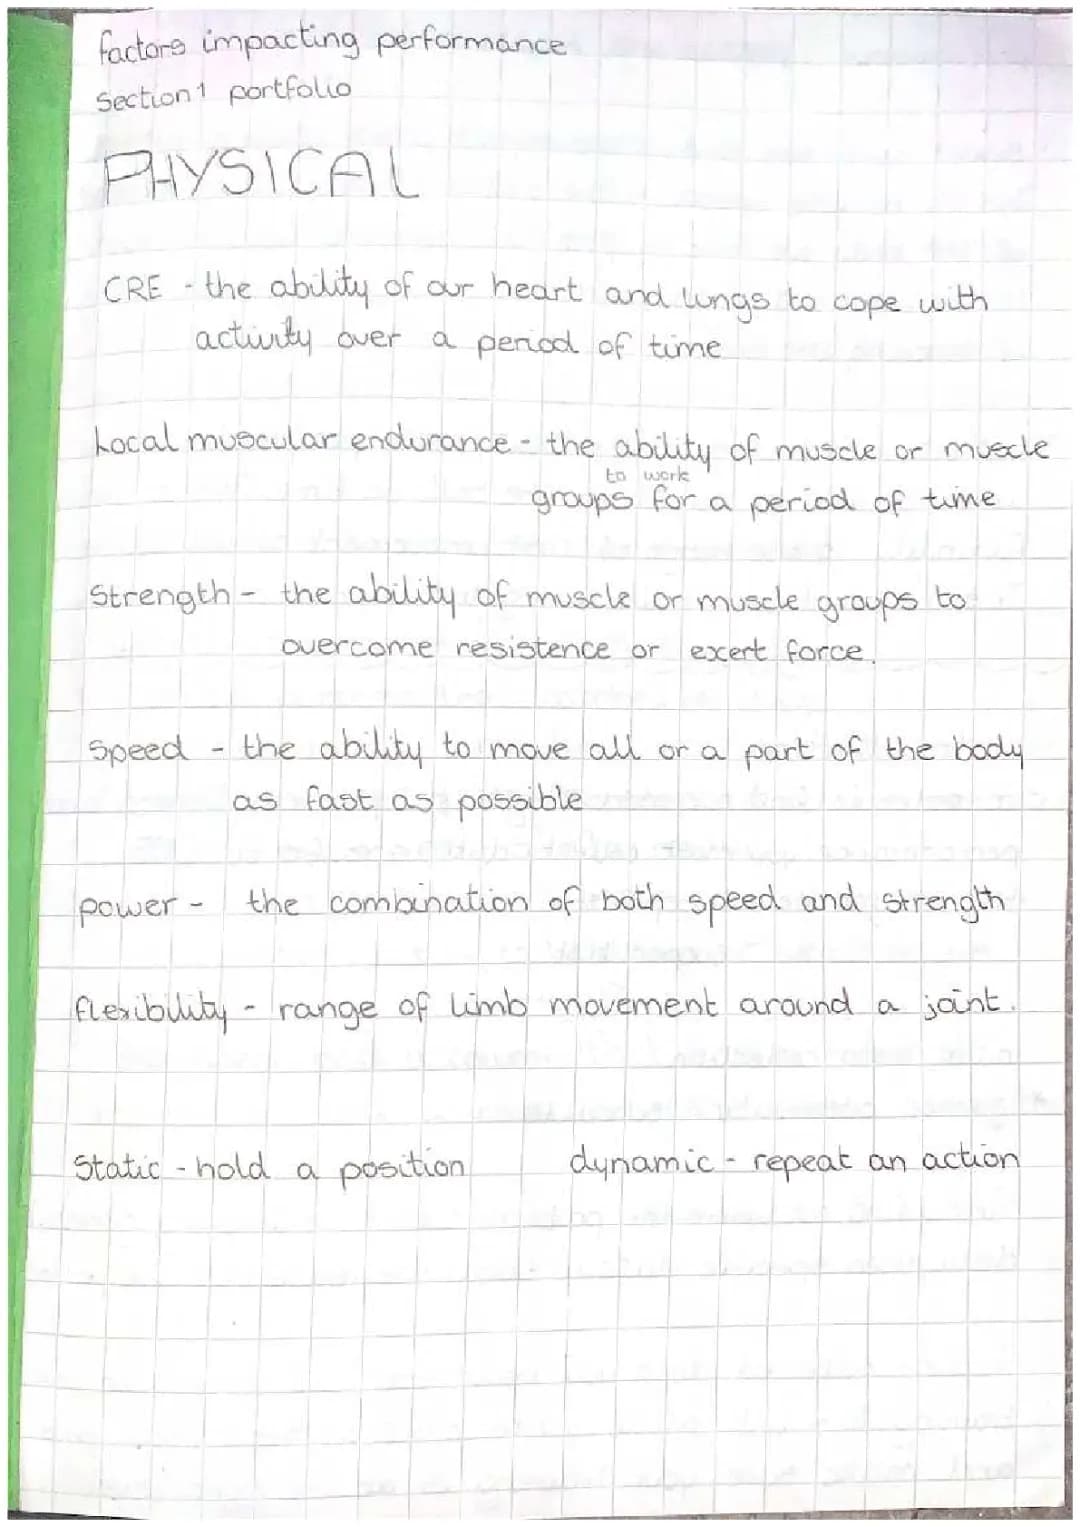 factors impacting performance
Section 1 portfolio
PHYSICAL
CRE - the ability of our heart and lungs to cope with
activity over a period of time
Local muscular endurance - the ability of muscle or muscle
to work
groups for a period of time
Strength - the ability of muscle or muscle groups to
overcome resistence or exert force.
Speed - the ability to move all or a part of the body
as fast as possible
power - the combination of both speed and strength
flexibility - range of limb movement around a joint.
Static - hold a position dynamic - repeat an action